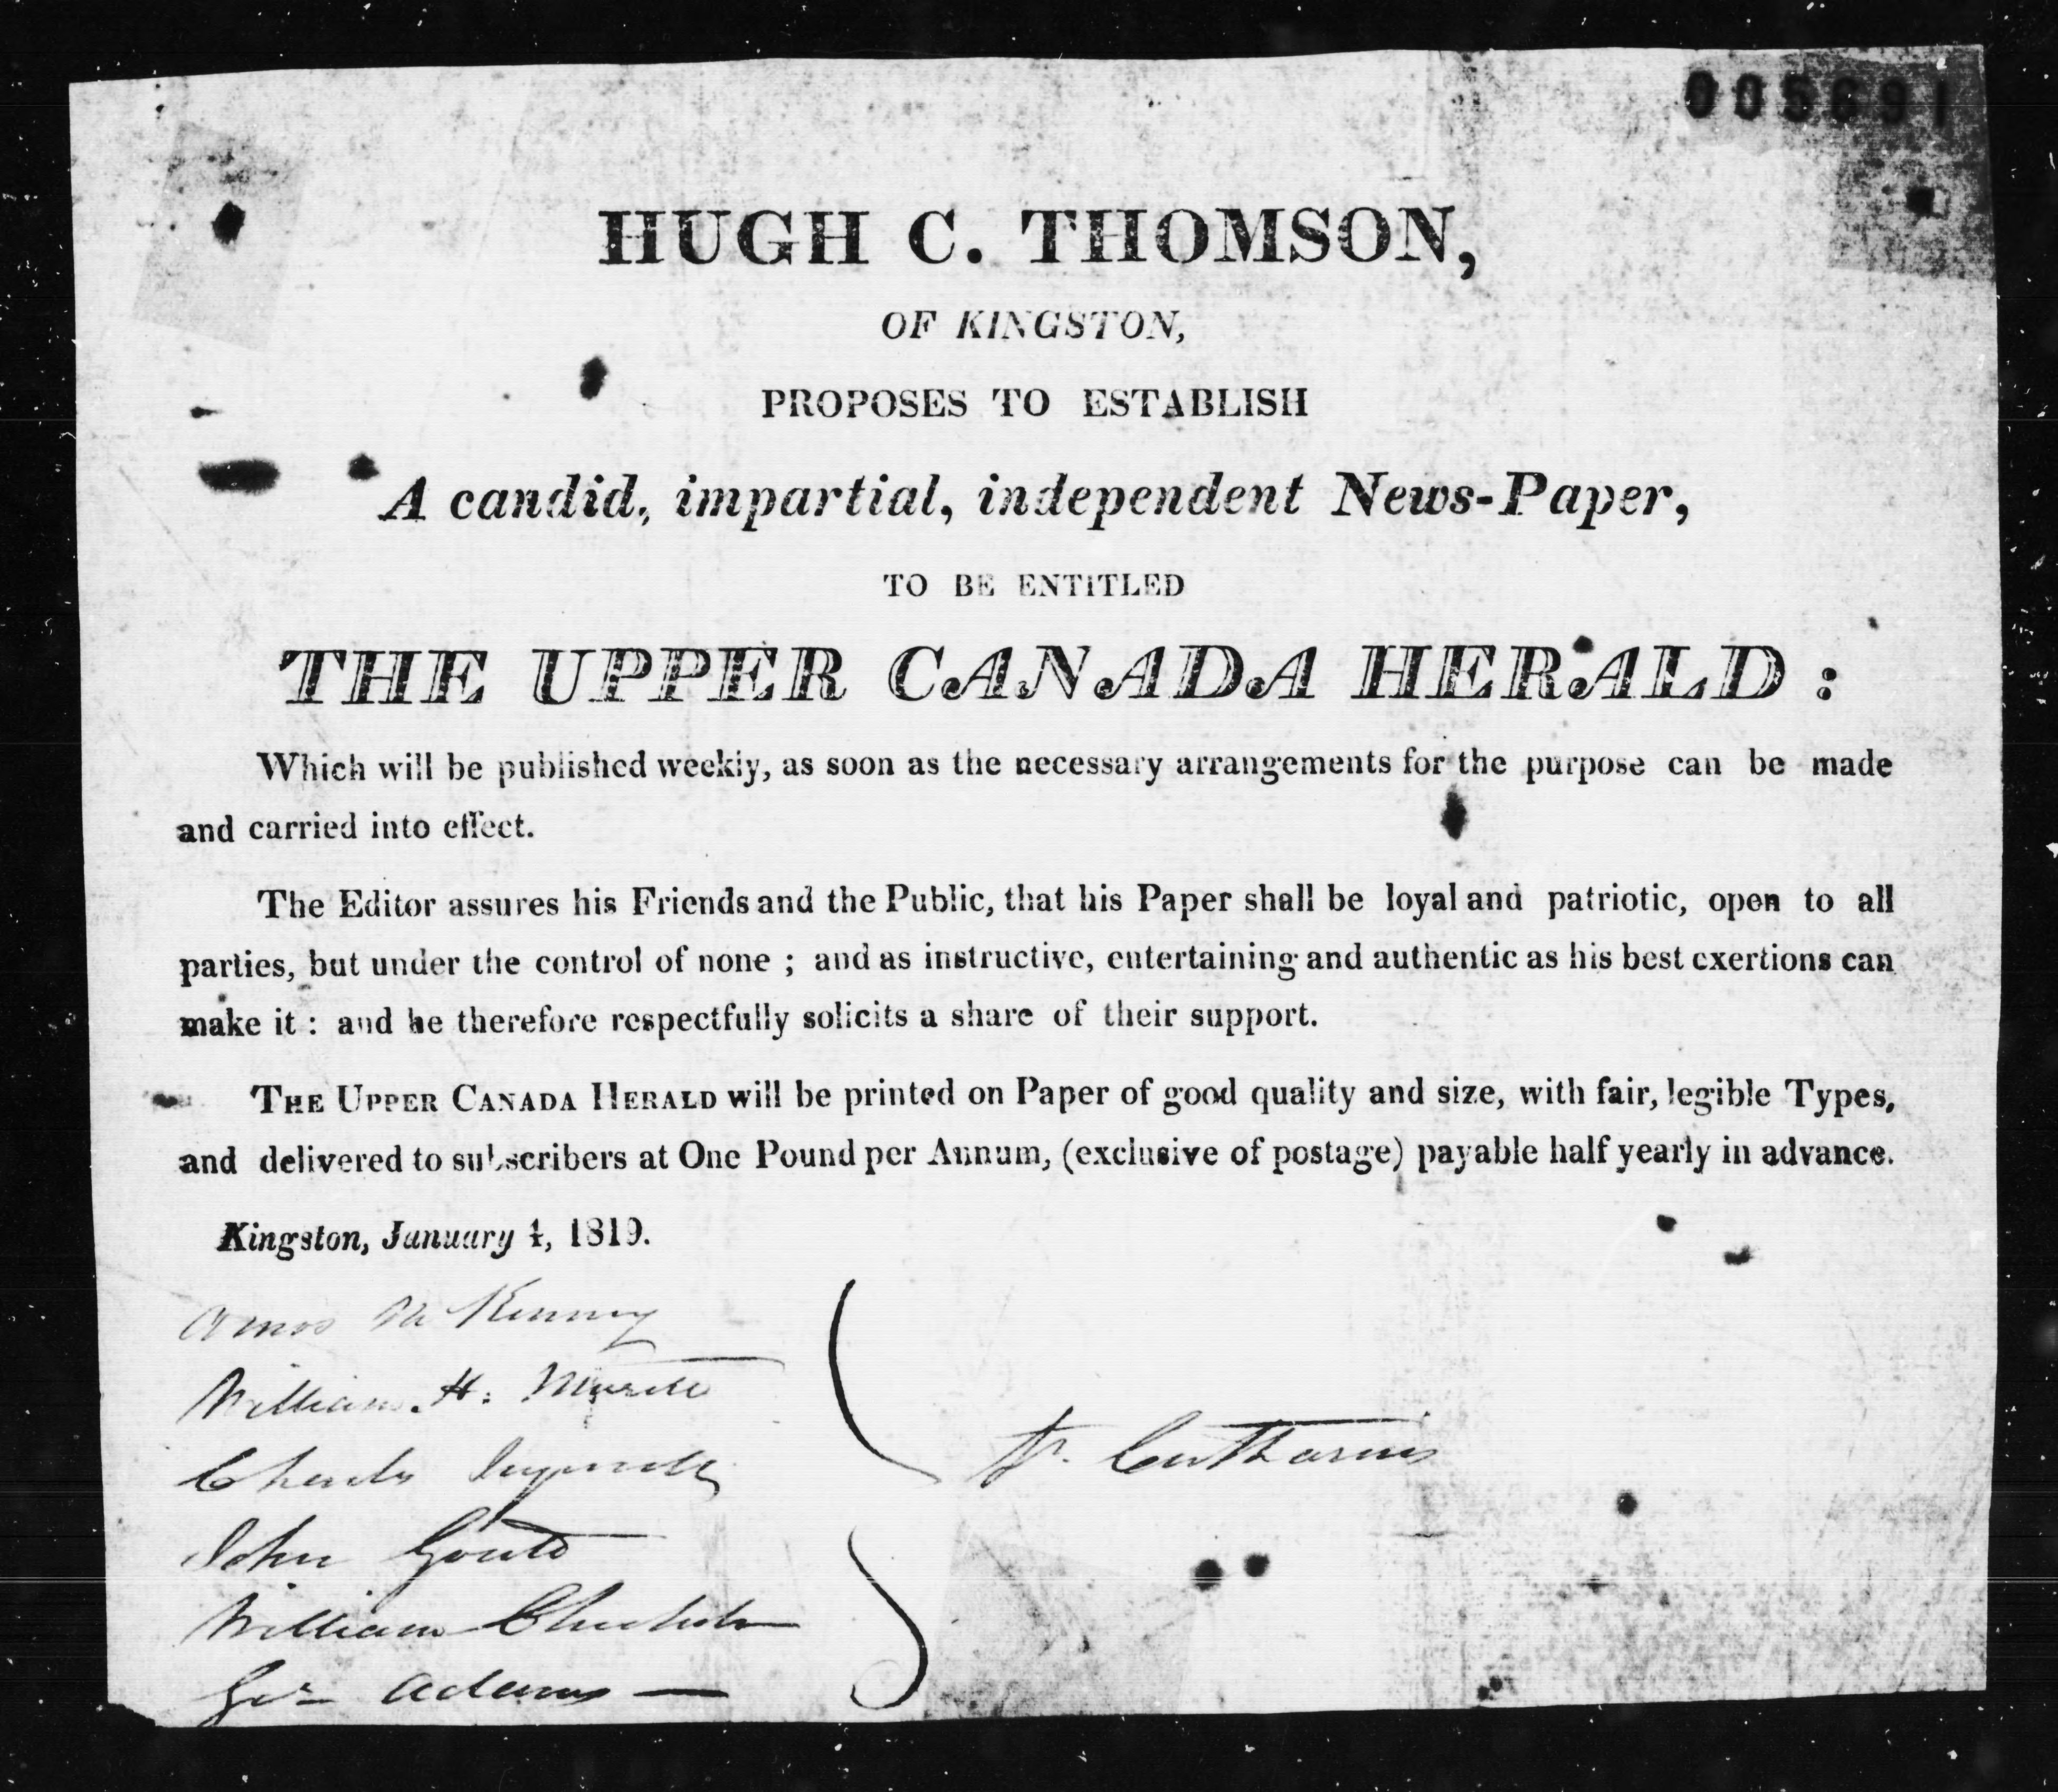 005691
HUGH C. THOMSON,
OF KINGSTON,
PROPOSES TO ESTABLISH
A candid, impartial, independent News-Paper,
TO BE ENTITLED
THE UPPER CANADA HERALD :
Which will be published weekly, as soon as the necessary arrangements for the purpose can be made
and carried into effect.
The Editor assures his Friends and the Public, that his Paper shall be loyal and patriotic, open to all
parties, but under the control of none ; and as instructive, entertaining and authentic as his best exertions can
make it : and he therefore respectfully solicits a share of their support.
THE UPPER CANADA HERALD will be printed on Paper of good quality and size, with fair, legible Types,
and delivered to subscribers at One Pound per Annum, (exclusive of postage) payable half yearly in advance.
Kingston, January 4, 1819.
Amos McKenney
William. H. Merritt
Charles Ingersoll
St. Catharines
John Gould
William Chisholm
Geo Adams —